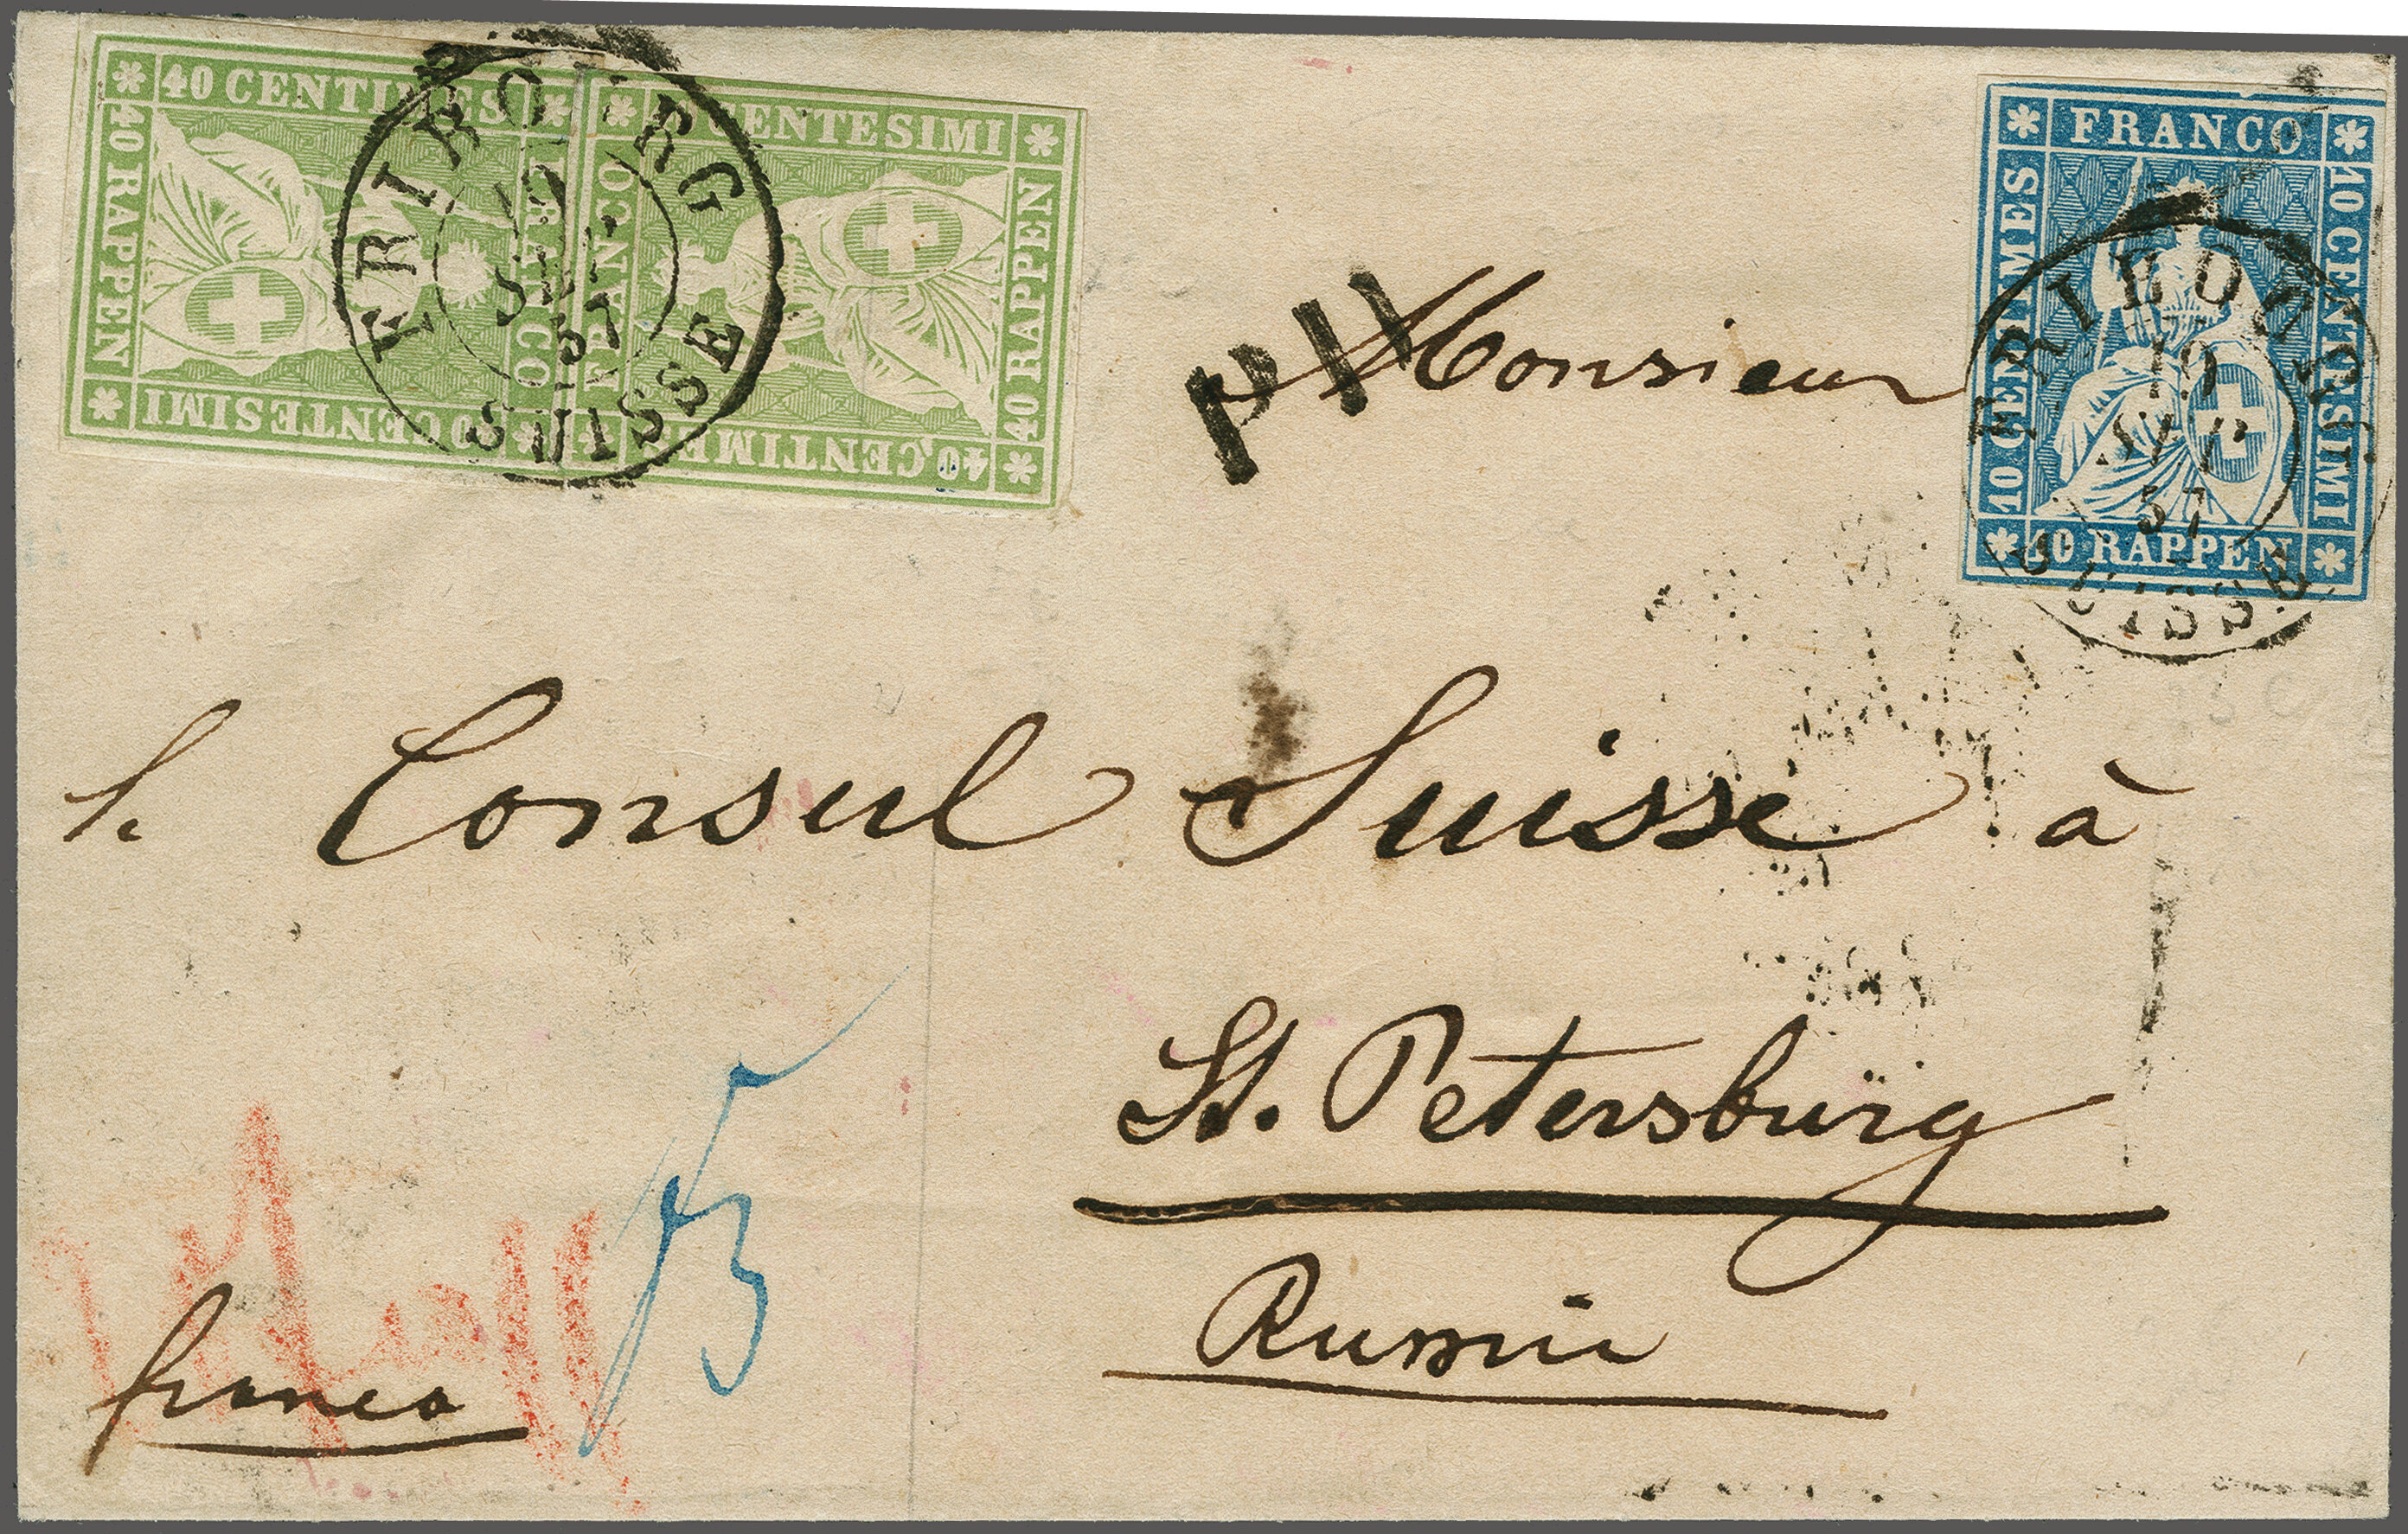 40 CENTIMES
40 RAPPEN
FRANCO
40 CENTESIMI
CENTESIMI
40 RAPPEN
FRANCO
40 CENTIMES
FRIBOURG
19
SEPT
57
SUISSE
FRANCO
10 CENTIMES
10 CENTESIMI
10 RAPPEN
FRIBOURG
19
SEPT
57
SUISSE
Monsieur
le Consul Suisse à
St. Petersburg
Russie
franco